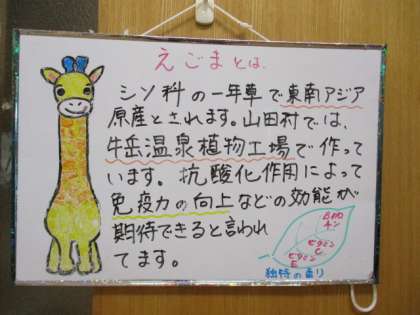 えごまとは、
シソ科の一年草で東南アジア
原産とされます。山田村では、
牛岳温泉植物工場で作って
います。抗酸化作用によって
免疫力の向上などの効能が
期待できると言われ
てます。
ビタミン
C
ビタミン
E
独特の香り